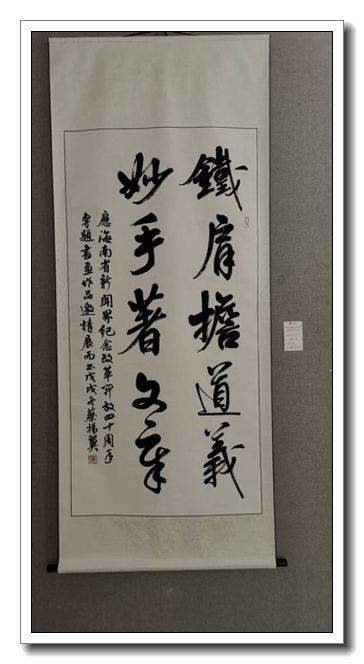 鐵肩擔道義
妙手著文章
應海南省新聞界紀念改革開放四十周年
專題書畫作品邀請展而出戊戌冬蔡揚翼